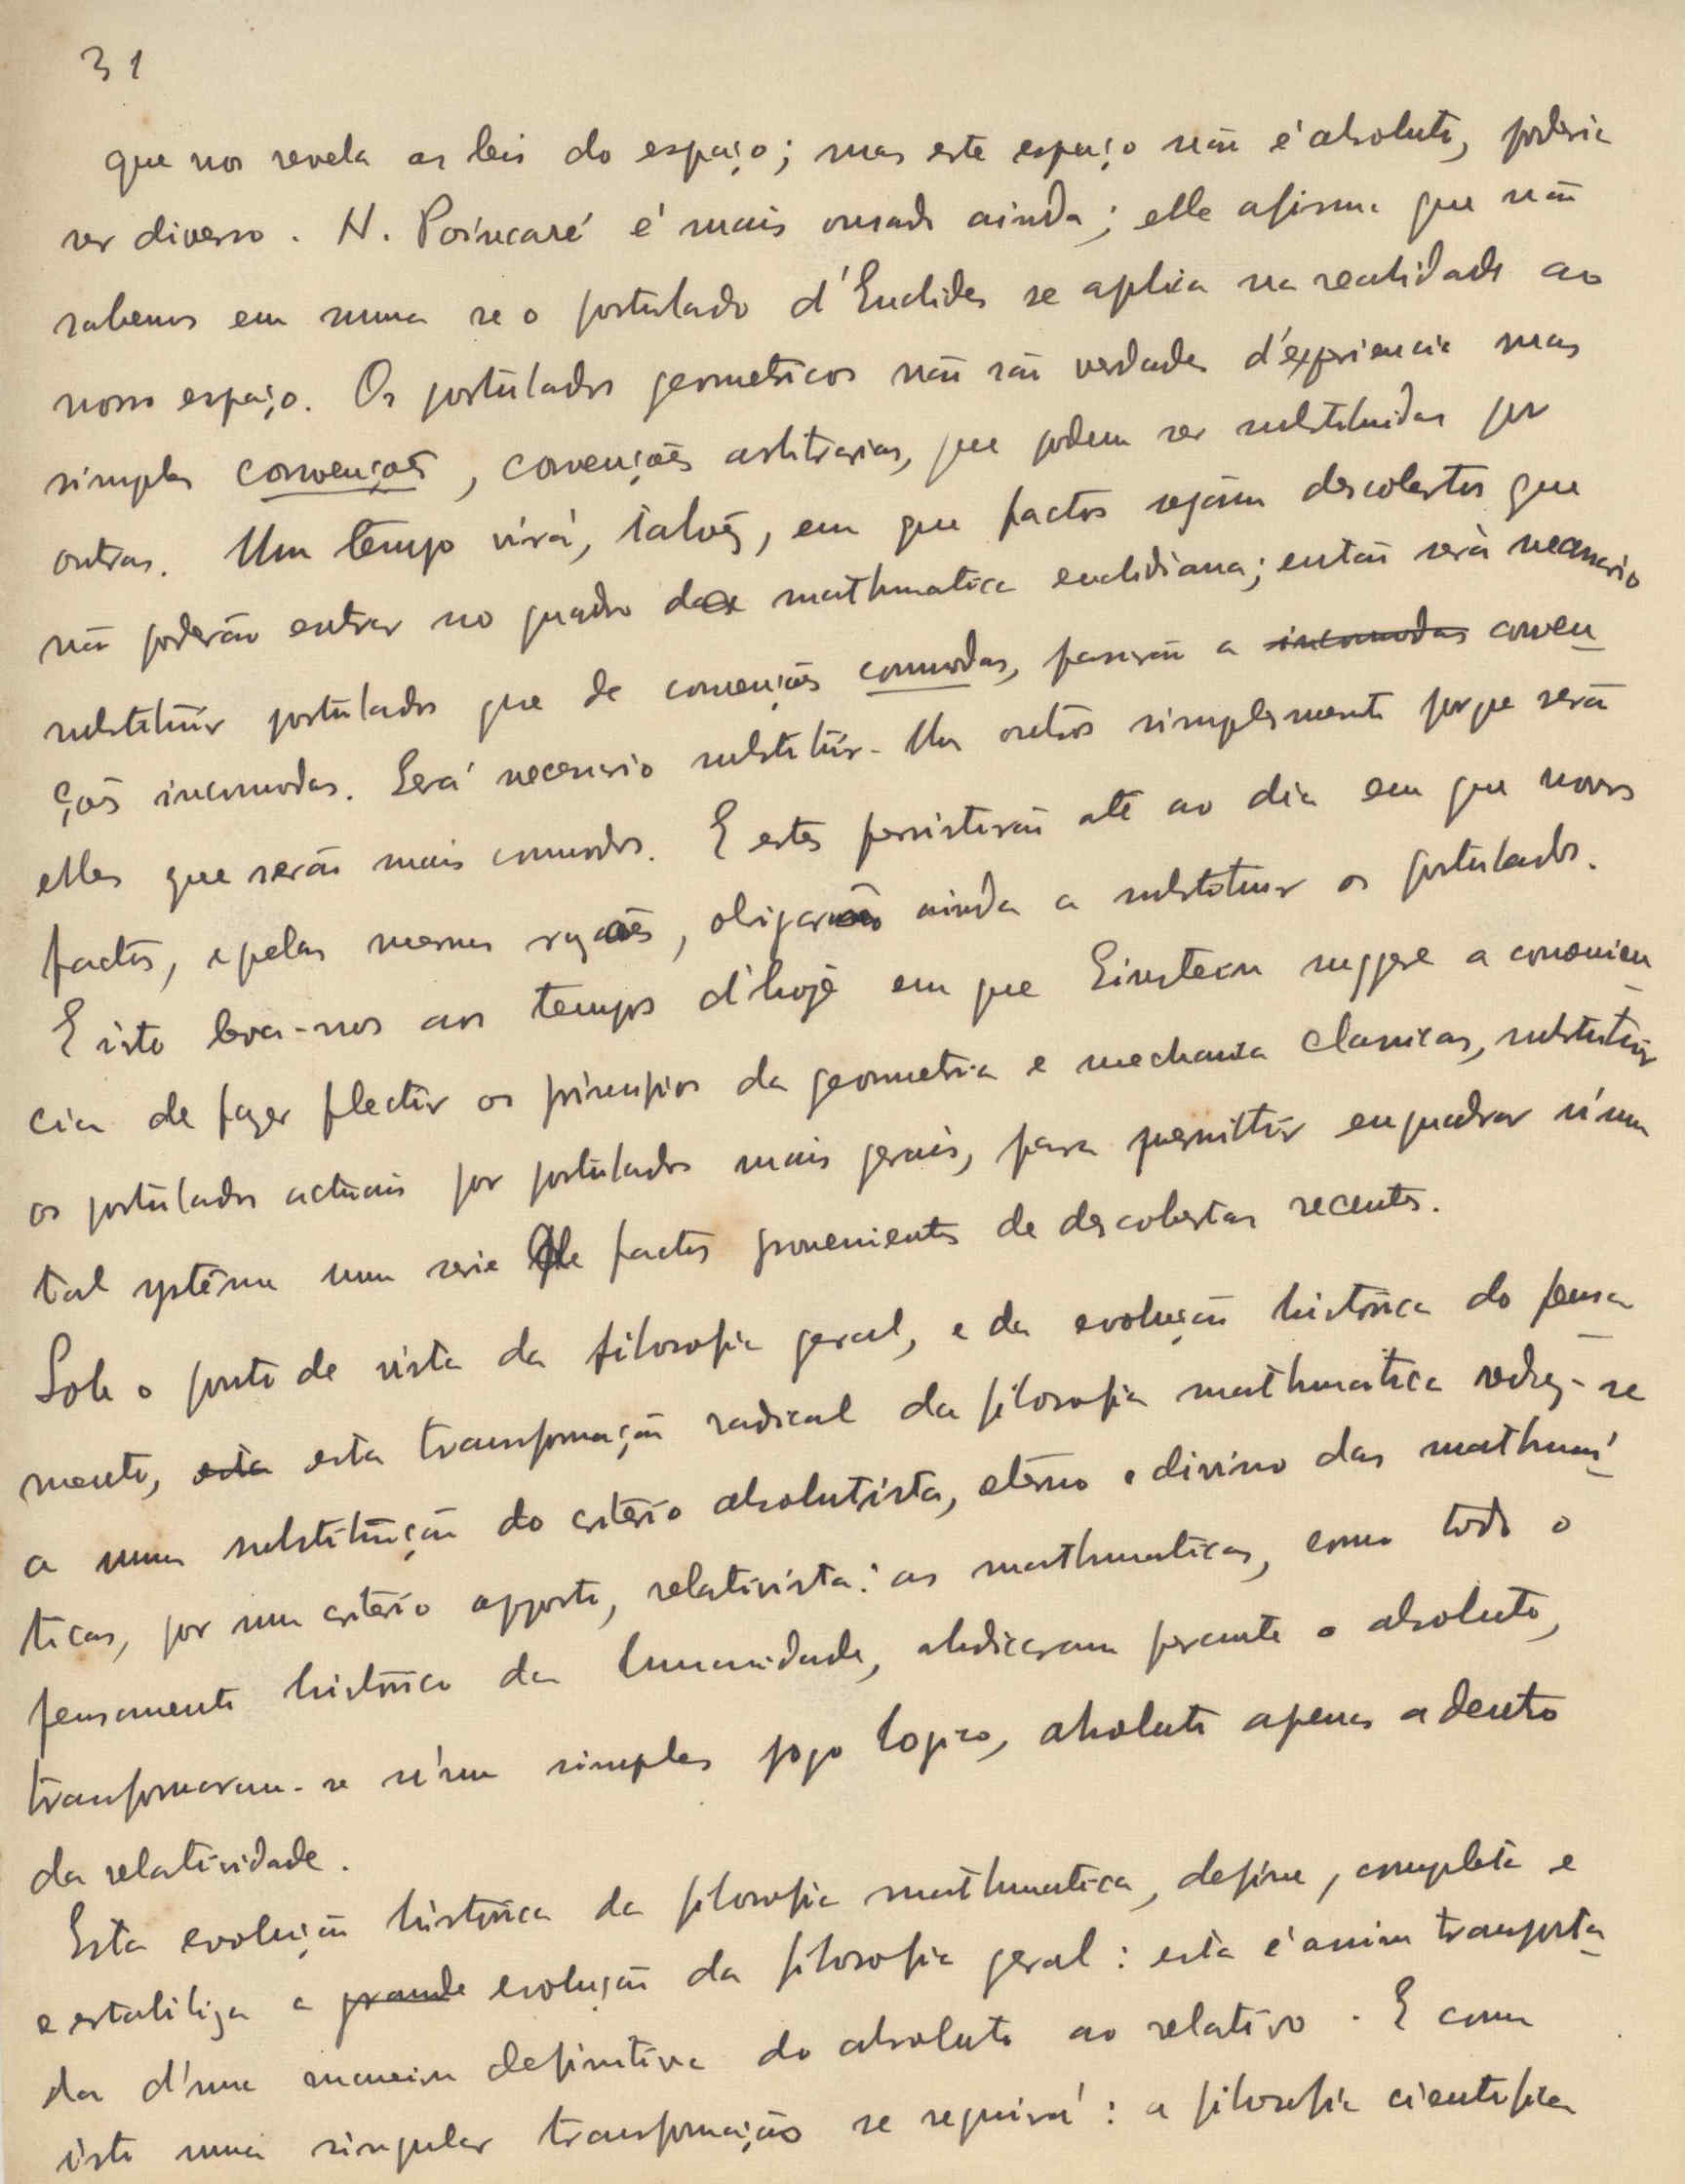 31
que nos revela as leis do espaço; mas este espaço não é absoluto, poderia
ser diverso. H. Poíncaré é mais ousado ainda; elle afirma que não
sabemos em suma se o postulado d'Euclides se aplica na realidade ao
nosso espaço. Os postulados geometricos não são verdades d'experiencia mas
simples convenções, convenções arbitrarias, que podem ser substituidas por
outras. Um tempo virá, talvez, em que factos sejam descobertos que
não poderão entrar no quadro da mathematica euclidiana; então será necessario
substituir postulados que de convenções commodas, passarão a incomodas conven
ções incomodas. Será necessario substituir-lhes outros simplesmente porque serão
elles que serão mais comodos. E estes persistirão até ao dia em que novos
factos, e pelas mesmas razões, obrigarão ainda a substituir os postulados.
E isto leva-nos aos tempos d'hoje em que Einstein suggere a convenien
cia de fazer flectir os principios da geometria e mechanica classicas, substituir
os postulados actuais por postulados mais gerais, para permittir enquadrar n'um
tal systema uma serie de factos provenientes de descobertas recentes.
Sob o ponto de vista da filosofia geral, e da evolução histórica do pensa
mento, esta esta transformação radical da filosofia mathematica reduz-se
a uma substituição do critério absolutista, eterno e divino das mathemá
ticas, por um critério opposto, relativista: as mathematicas, como todo o
pensamento histórico da humanidade, abdicaram perante o absoluto,
transformaram-se n'um simples jogo logico, absoluto apenas a dentro
da relatividade.
Esta evolução histórica da filosofia mathematica, define, completa e
e estabiliza a grande evolução da filosofia geral: esta é assim transporta
da d'uma maneira definitiva do absoluto ao relativo. E com
isto uma singular transformação se seguirá: a filosofia cientifica